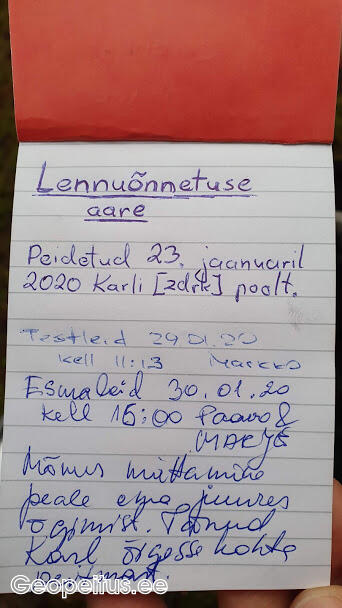 Lennuõnnetuse
aare
Peidetud 23. jaanuaril
2020 Karli [zdrk] poolt.
Testleid 29.01.20
kell 11:13 Markko
Esmaleid 30.01.20
kell 16:00 Paavo &
MARJE
Mõnus
peale juures
õgimist. Tänud
Karl õigesse kohta
Geopeitus.ee